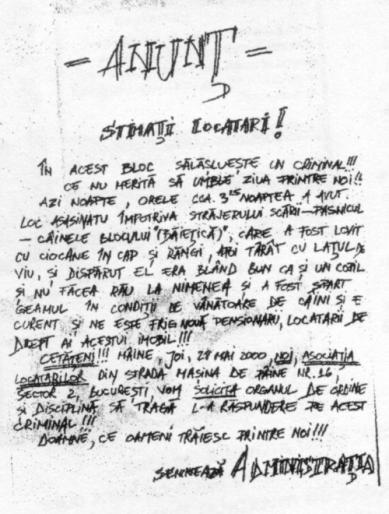 = ANUNȚ =
STIMAȚII LOCATARI!
ÎN ACEST BLOC SĂLĂSLUEȘTE UN CRIMINAL!!!
CE NU MERITĂ SĂ UMBLE ZIUA PRINTRE NOI!!
AZI NOAPTE, ORELE CCA. 3 NOAPTEA A AVUT
LOC ASASINATU ÎMPOTRIVA STRĂJERULUI SCĂRII–PAȘNICUL
– CÂINELE BLOCULUI "(BĂIEȚICĂ)", CARE A FOST LOVIT
CU CIOCANE ÎN CAP ȘI RĂNGI, APOI TÂRÂT CU LAȚUL DE
VIU, ȘI DISPĂRUT EL ERA BLÂND BUN CA ȘI UN COPIL
ȘI NU FĂCEA RĂU LA NIMENEA ȘI A FOST SPART
GEAMUL ÎN CONDIȚII DE VÂNĂTOARE DE CÂINI ȘI E
CURENT ȘI NE ESTE FRIG NOUĂ PENSIONARU, LOCATARII DE
DREPT AI ACESTUI IMOBIL!!!
CETĂȚENI!!! MÂINE, JOI, 28 MAI 2000, NOI, ASOCIAȚIA
LOCATARILOR DIN STRADA MASINA DE PÂINE NR. 16,
SECTOR 2, BUCUREȘTI, VOM SOLICITA ORGANUL DE ORDINE
ȘI DISCIPLINĂ SĂ TRAGĂ L-A RĂSPUNDERE PE ACEST
CRIMINAL!!!
DOAMNE, CE OAMENI TRĂIESC PRINTRE NOI!!!
SEMNEAZĂ ADMINISTRAȚIA